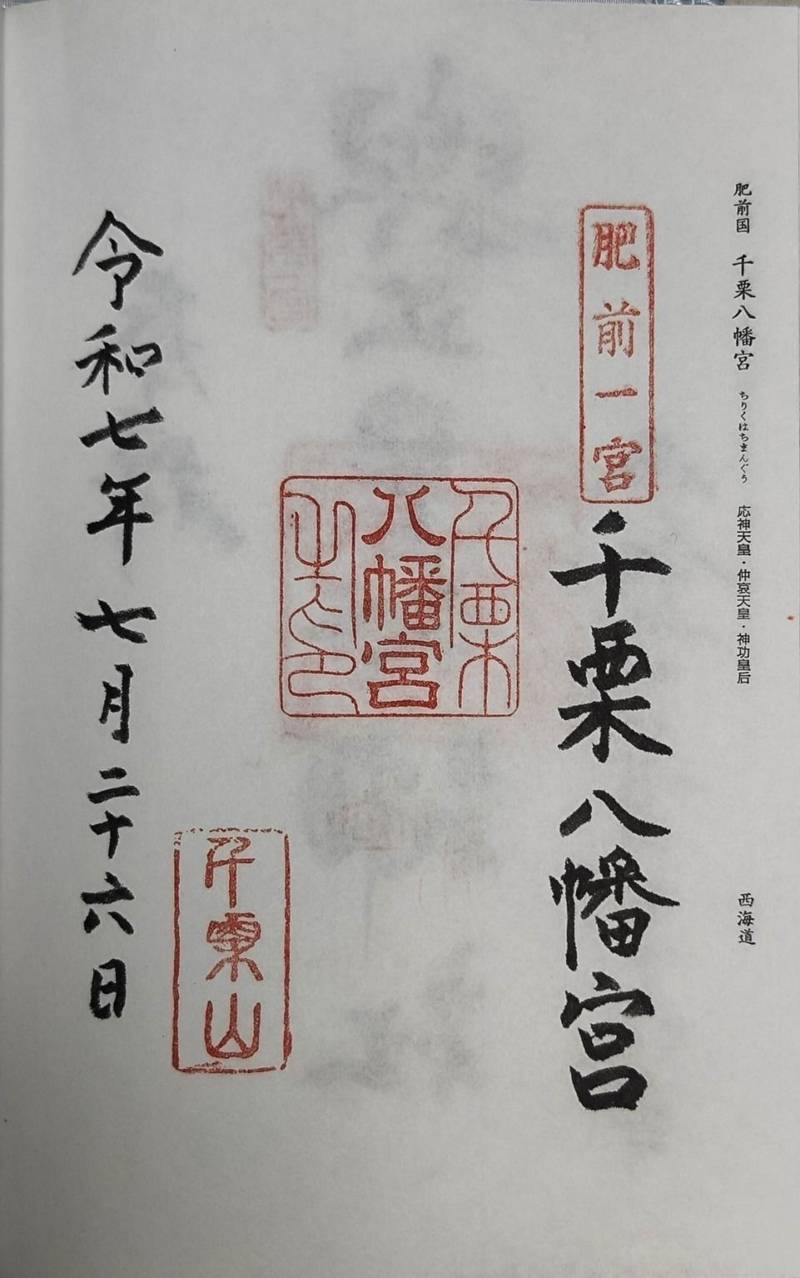 肥前国 千栗八幡宮 ちりくはちまんぐう 応神天皇・仲哀天皇・神功皇后 西海道
肥前一宮
千栗八幡宮
千栗
八幡宮
之印
千栗山
令和七年七月二十六日